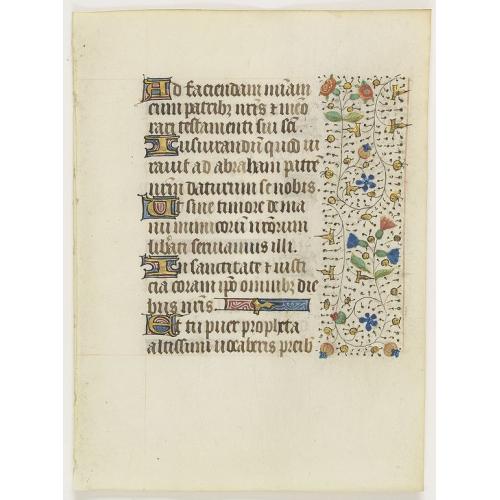 Ad faciendam miam
cum patribz nris & mem
rari testamenti sui sci.
Iusiurandum quod iu
ravit ad abraham patre
nrm daturum se nobis.
Ut sine timore de ma
nu inimicorum nrorum
liberati serviamus illi.
In sanctitate & iusti
cia coram ipo omnibz die
bus nris
Et tu puer propheta
altissimi vocaberis preib